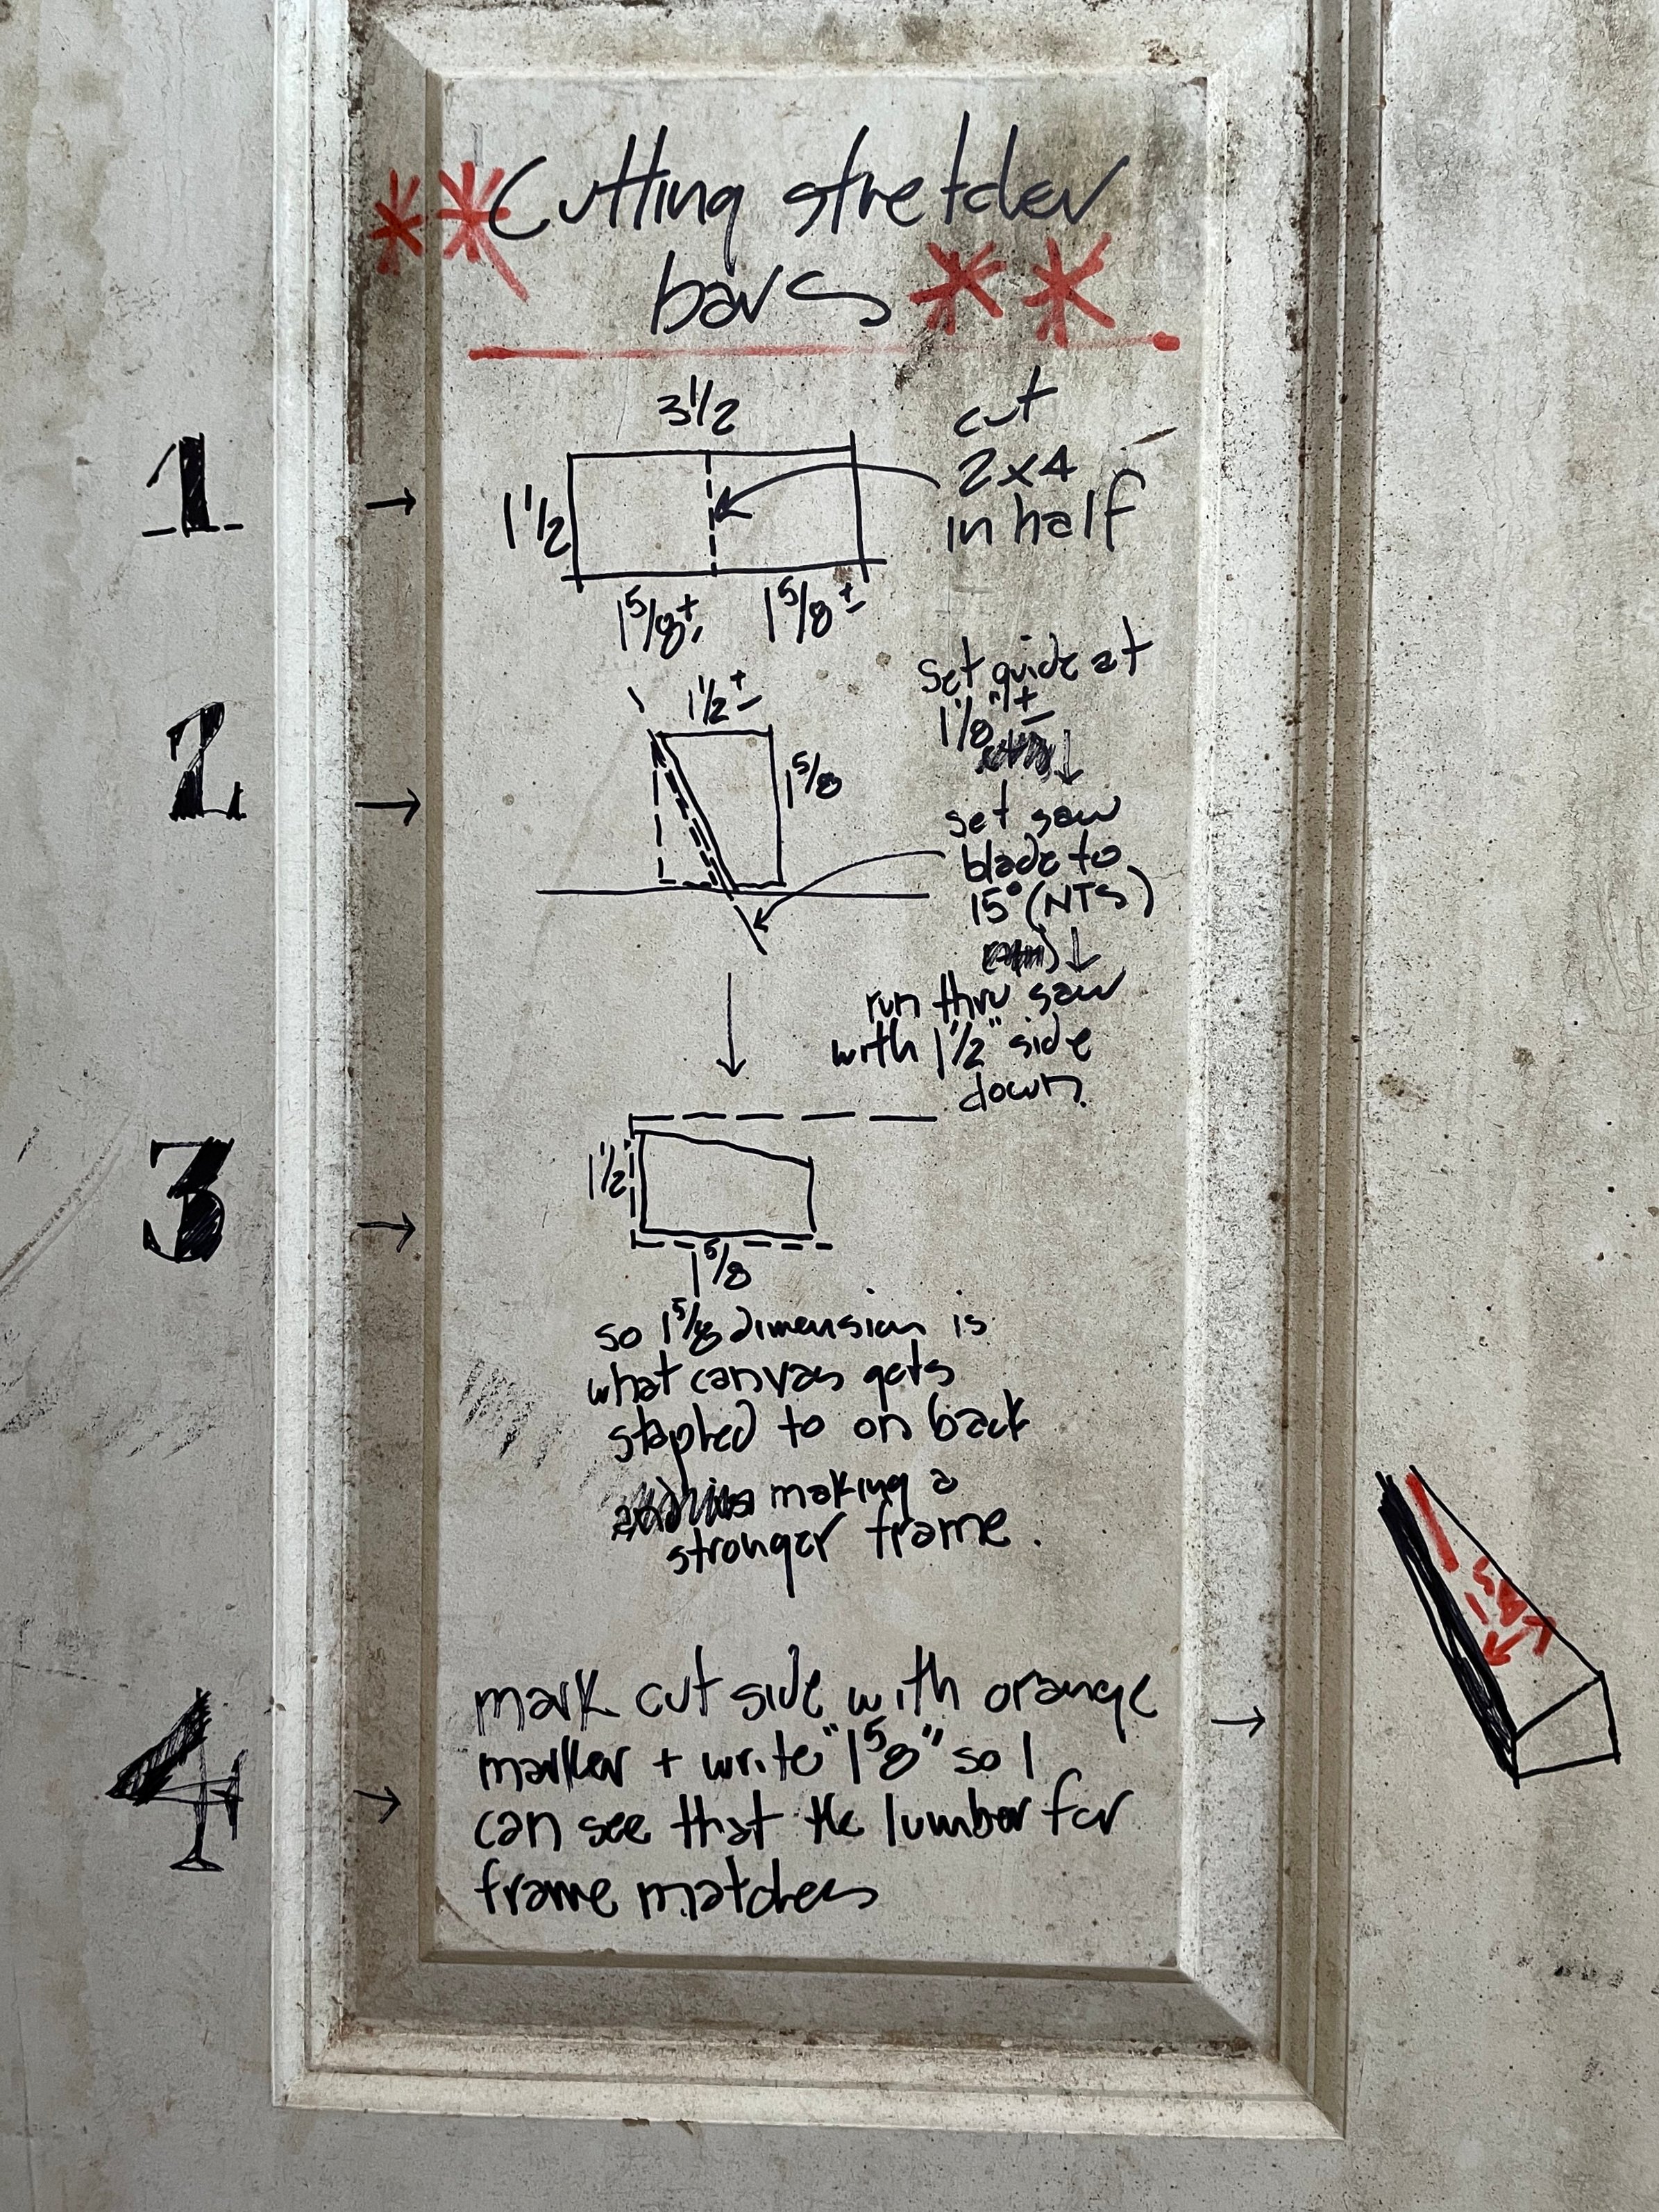 ** Cutting stretcher
bars **
1 →
3 1/2
1 1/2
1 5/8 ±
1 5/8 ±
cut
2x4
in half
2 →
1 1/2 ±
1 5/8
Set guide at
1 1/8" ±
↓
set saw
blade to
15° (NTS)
↓
run thru saw
with 1 1/2" side
down.
3 →
1 1/2
1 5/8
so 1 5/8 dimension is
what canvas gets
stapled to on back
making a
stronger frame.
4 →
mark cut side with orange →
marker + write "1 5/8" so I
can see that the lumber for
frame matches